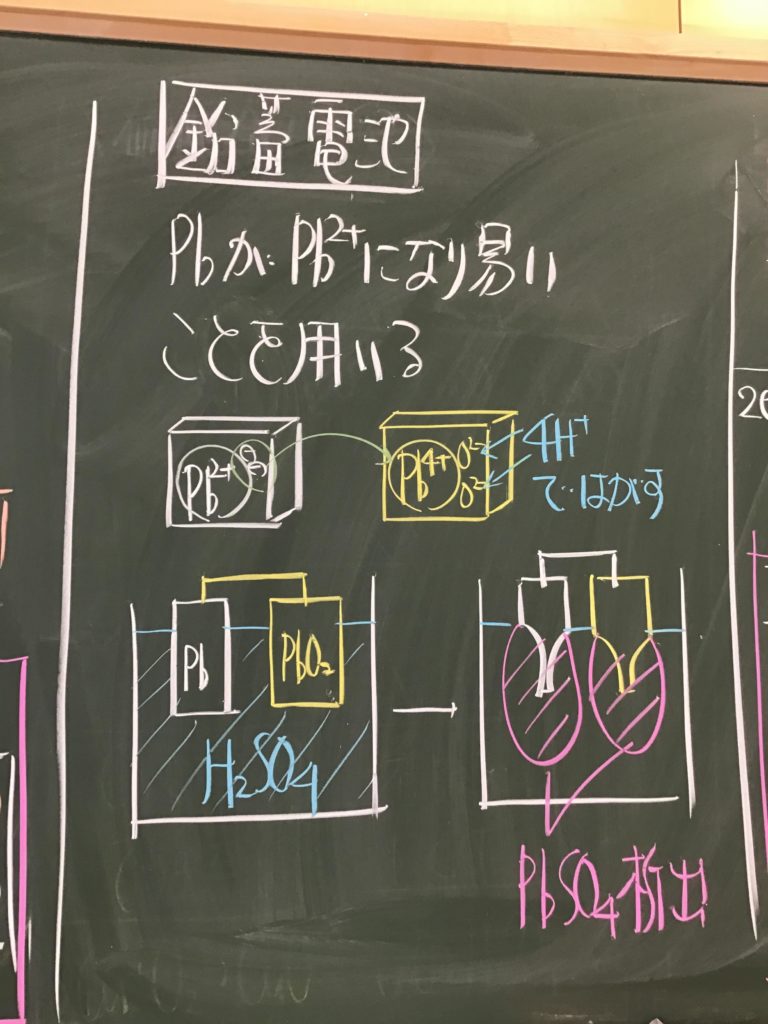 鉛蓄電池
PbがPb²⁺になり易い
ことを用いる
Pb²⁺
Pb⁴⁺ O²⁻ O²⁻
4H⁺
ではがす
Pb
PbO₂
H₂SO₄
PbSO₄析出